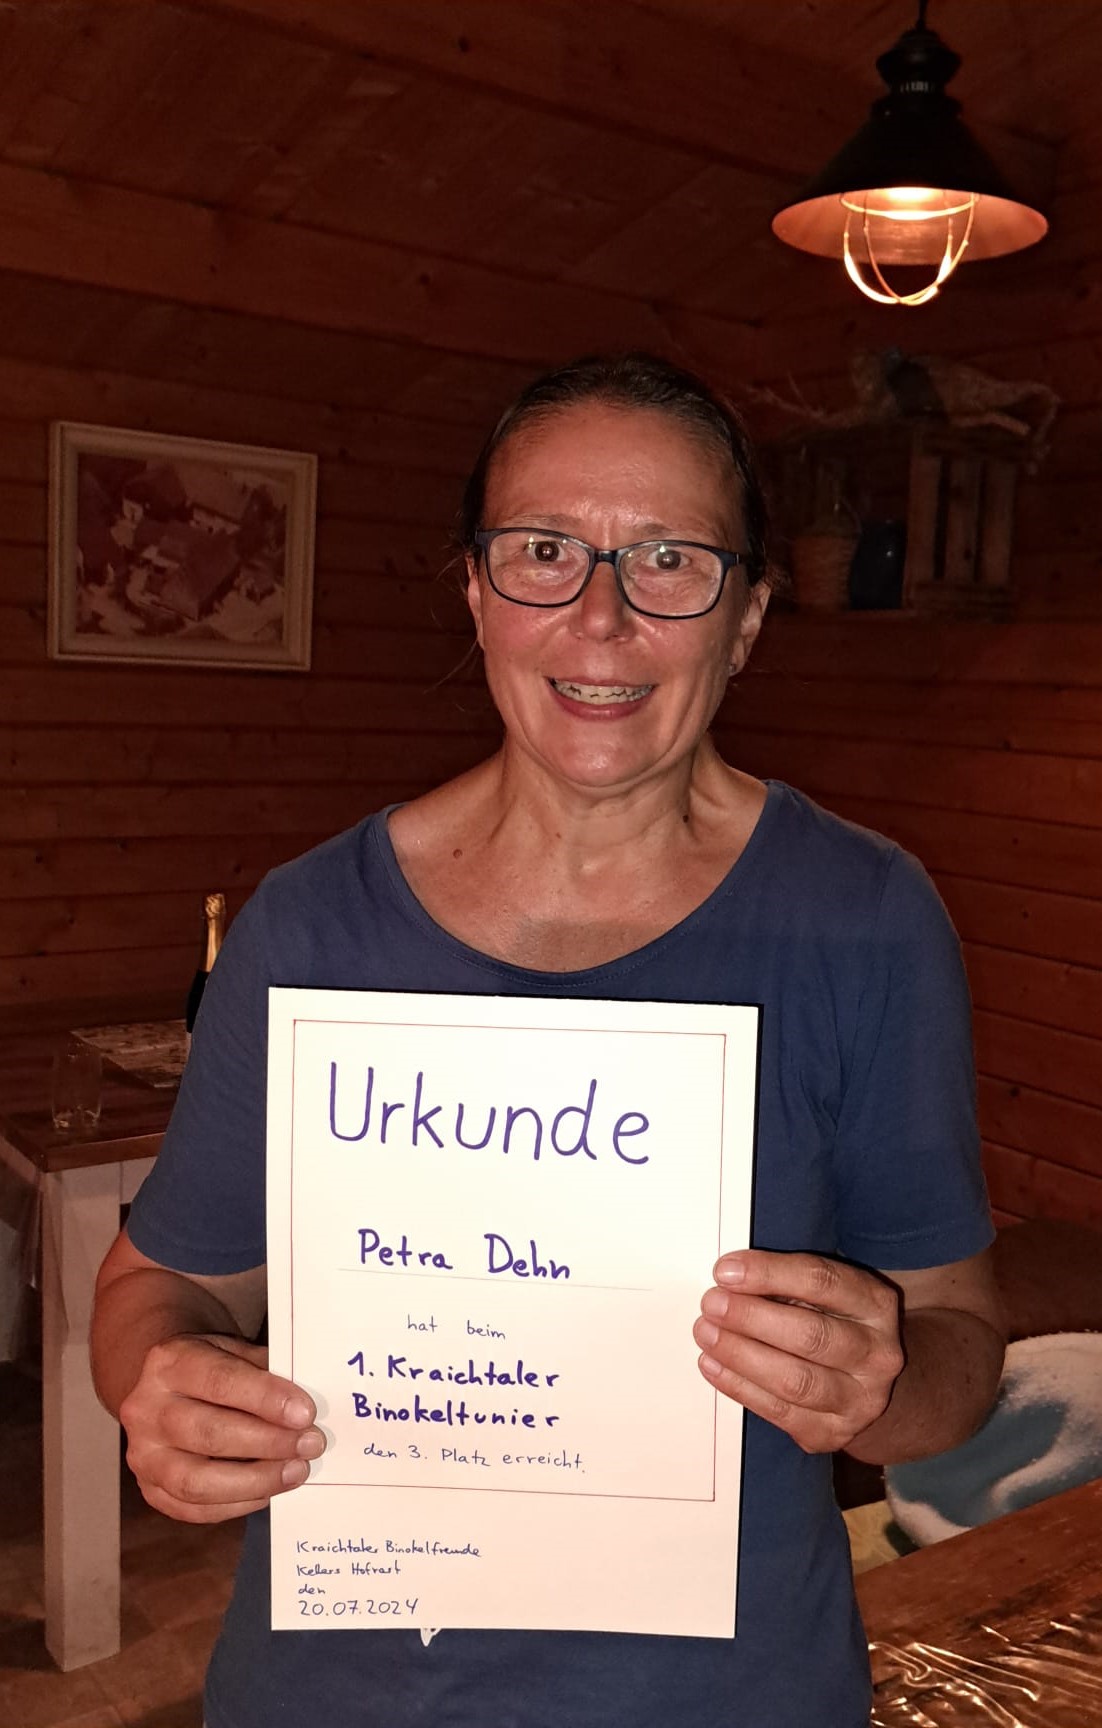 Urkunde
Petra Dehn
hat beim
1. Kraichtaler
Binokeltunier
den 3. Platz erreicht.
Kraichtaler Binokelfreunde
Kellers Hofrast
den
20.07.2024